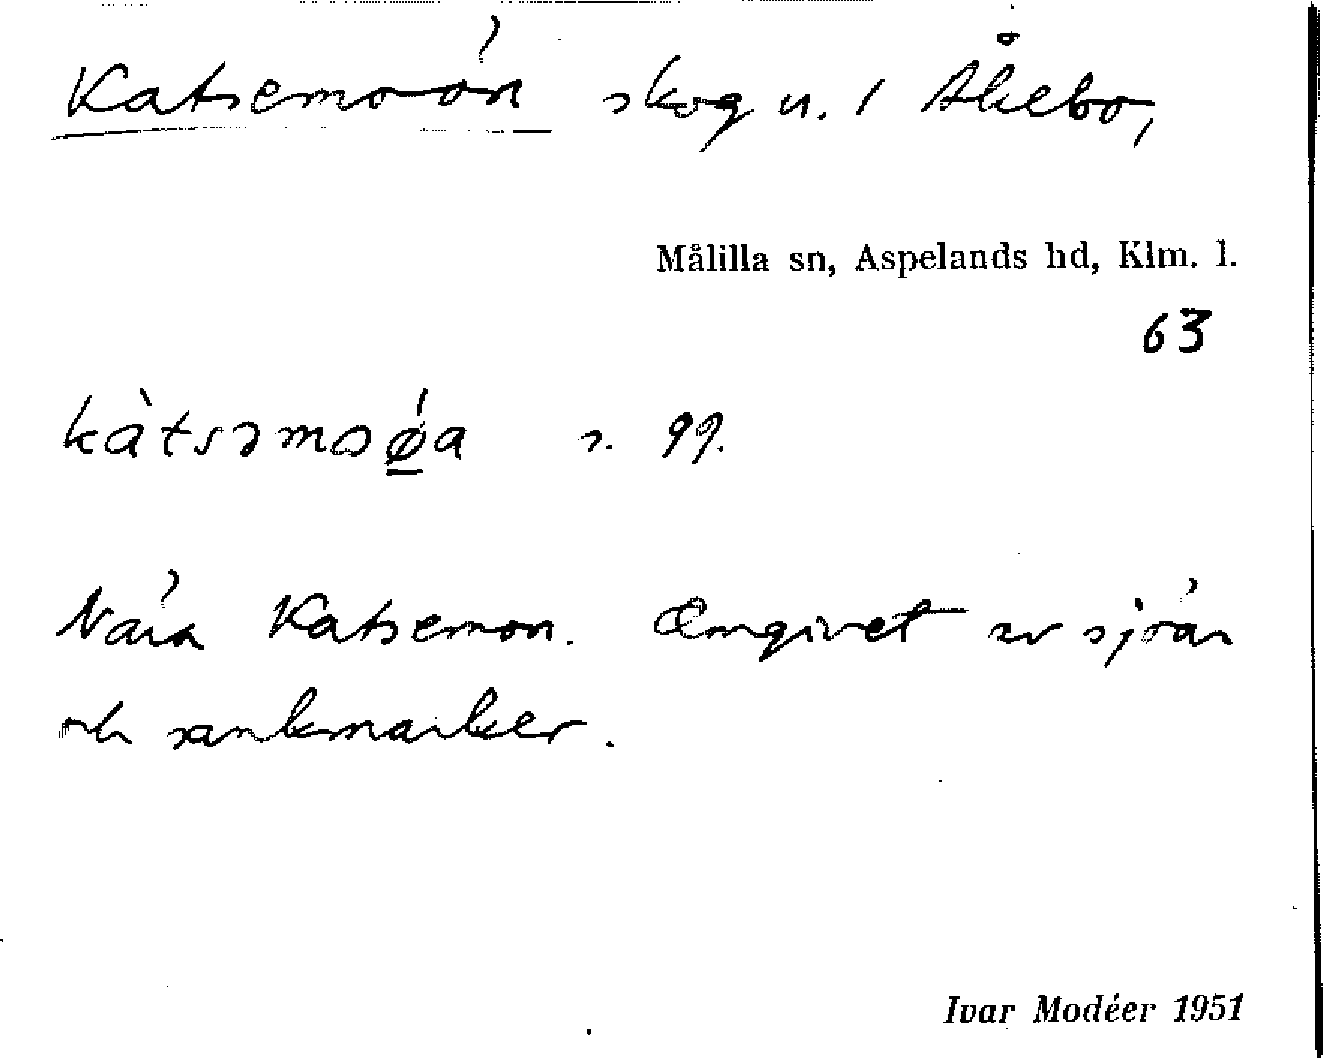 Katsemoön skog u. 1 Åkebo,
Målilla sn, Aspelands hd, Klm. l.
63
kàtsəmoǿa s. 99.
Nära Katsemon. Omgivet av sjöar
och sankmarker.
Ivar Modéer 1951